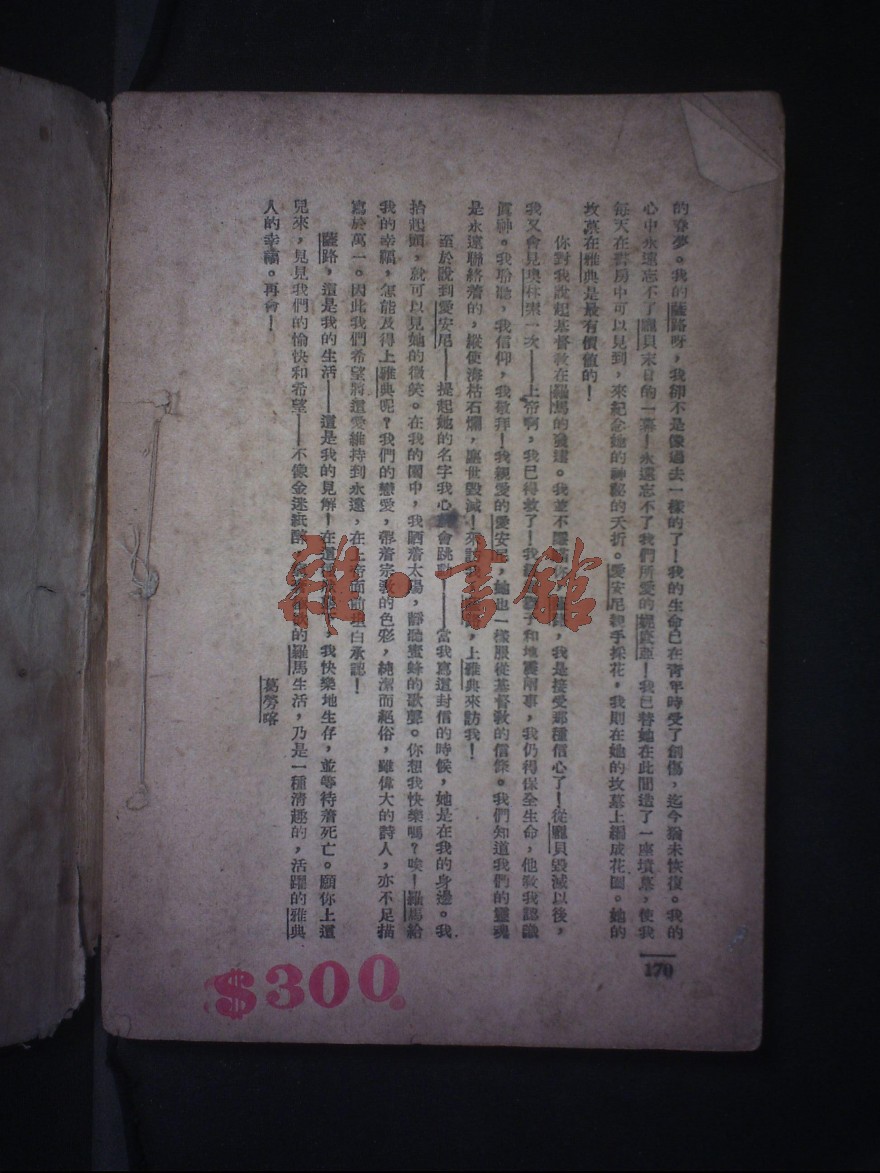 的春夢。我的薩路呀，我卻不是像過去一樣的了！我的生命已在青年時受了創傷，迄今猶未恢復。我的
心中永遠忘不了龐貝末日的一幕！永遠忘不了我們所愛的妮蒂亞！我已替她在此間造了一座墳墓，使我
每天在書房中可以見到，來紀念她的神秘的夭折。愛安尼親手採花，我則在她的坟墓上編成花圈。她的
坟墓在雅典是最有價值的！
你對我說起基督教在羅馬的發達。我並不隱瞞你，薩路，我是接受那種信心了！從龐貝毀滅以後，
我又會見奧林索一次——上帝啊，我已得救了！我經過獅子和地震兩事，我仍得保全生命，他教我認識
真神。我聆聽，我信仰，我敬拜！我親愛的愛安尼，她也一樣服從基督教的信條。我們知道我們的靈魂
是永遠聯絡着的，縱使海枯石爛，塵世毀滅！來訪我，薩路，上雅典來訪我！
至於說到愛安尼——提起她的名字我心就會跳動——當我寫這封信的時候，她是在我的身邊。我
抬起頭，就可以見她的微笑。在我的園中，我晒着太陽，靜聽蜜蜂的歌聲。你想我快樂嗎？唉！羅馬給
我的幸福，怎能及得上雅典呢？我們的戀愛，帶着宗教的色彩，純潔而絕俗，雖偉大的詩人，亦不足描
寫於萬一。因此我們希望將這愛維持到永遠，在上帝面前坦白承認！
薩路，這是我的生活——這是我的見解！在這種狀態下，我快樂地生存，並等待着死亡。願你上這
兒來，見見我們的愉快和希望——不像金迷紙醉，的羅馬生活，乃是一種清趣的，活躍的雅典
人的幸福。再會！
葛勞喀
170
$300
雜·書館